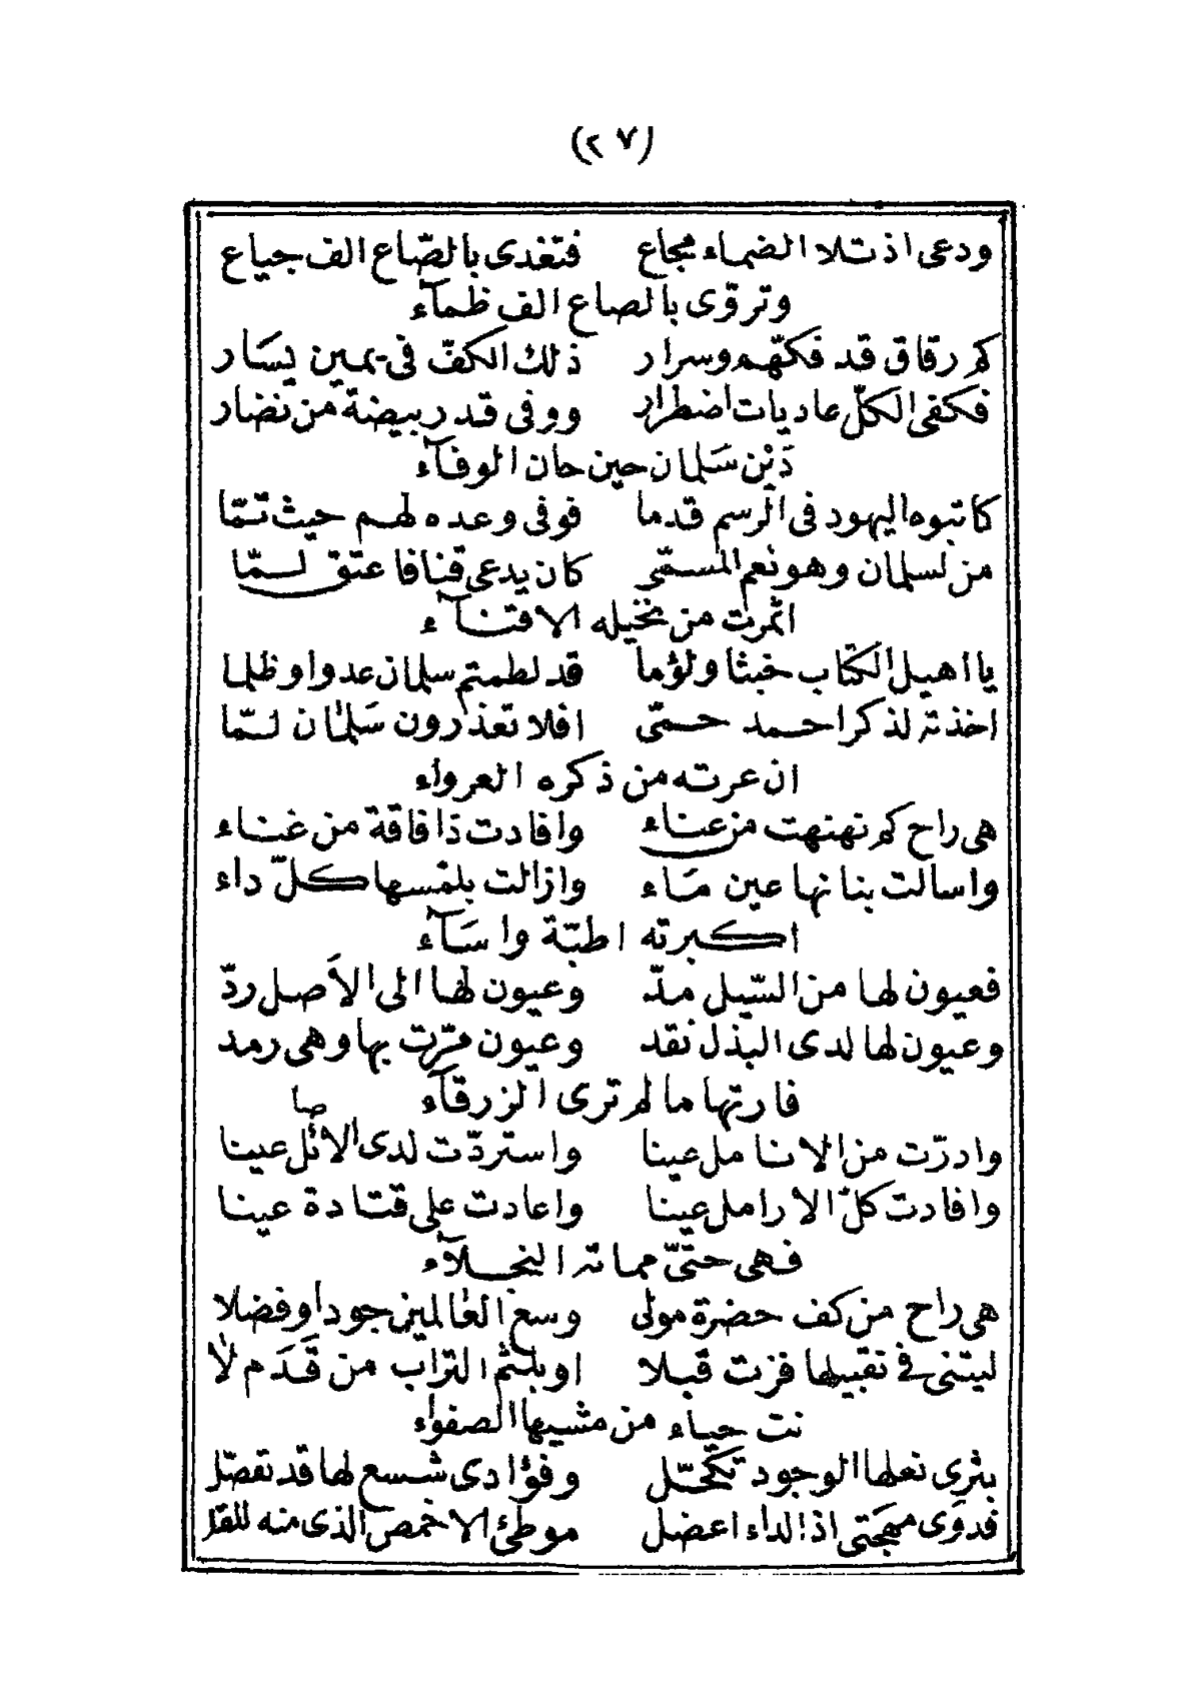 (٢٧)
ودعى اذ تلا الضماء مجاع فتغدى بالصّاع الف جياع
وتروّى بالصاع الف ظمآء
كم رقاق قد فكّهم وسرار ذلك الكفّ فى يمين يسَار
فكفى الكلّ عاديات اضطرار ووفى قدر بيضة من نضار
دَيْن سَلمان حين حان الوفآء
كاتبوه اليهود فى الرسم قدما فوفى وعده لهم حيث تمّا
من لسلمان وهو نعم المسمّى كان يدعى قنا فاعتق لمّا
اثمرت من نخيله الاقنآء
يا اهيل الكتاب خبثا ولؤما قد لطمتم سلمان عدوا وظلما
اخذته لذكر احمد حمّى افلا تعذرون سَلمان لمّا
ان عرته من ذكره العرواء
هى راح كم نهنهت من عناء وافادت ذا فاقة من غناء
واسالت بنانها عين مَاء وازالت بلمسها كلّ داء
اكبرته اطبّة واسَآء
فعيون لها من السّيل مدّ وعيون لها الى الاَصل ردّ
وعيون لها لدى البذل نقد وعيون مرّت بها وهى رمد
فارتها ما لم ترى الزرقآء
صا
وادرّت من الانامل عينا واستردّت لدى الاثل عينا
وافادت كلّ الارامل عينا واعادت على قتادة عينا
فهى حتىّ مماته النجلآء
هى راح من كف حضرة مولى وسع العالمين جودا وفضلا
ليتنى فى تقبيلها فزت قبلا او بلثم التراب من قَدَم لا
نت حياء من مشيها الصفواء
بثرى نعلها الوجود تكحّل وفؤادى شسع لها قد تفصّل
فدوى مهجتى اذ الداء اعضل موطئ الاخمص الذى منه للقل